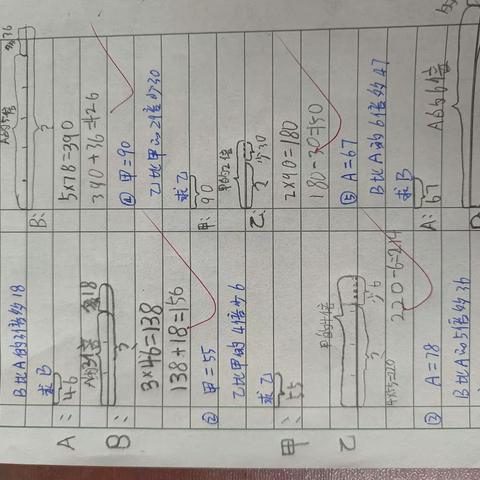 B比A的3倍多18
求B
A: 46
A的3倍 多18
B: ?
3×46=138
138+18=156
② 甲=55
乙比甲的4倍少6
求乙
甲: 55
甲的4倍
少6
乙 ?
4×55=220
220-6=214
③ A=78
B比A的5倍多36
A的5倍 多36
B: ?
5×78=390
390+36=426
④ 甲=90
乙比甲的2倍少30
求乙
甲: 90
甲的2倍
少30
乙: ?
2×90=180
180-30=150
⑤ A=67
B比A的6倍多47
求B
A: 67
A的6倍
B